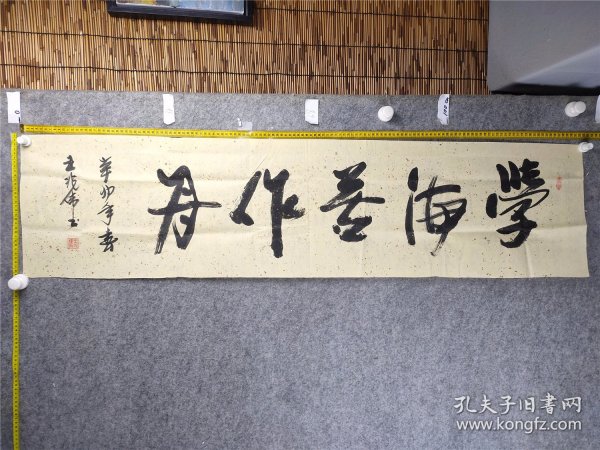 學海苦作舟
辛卯年春
王兆傳書
孔夫子旧书网
www.kongfz.com